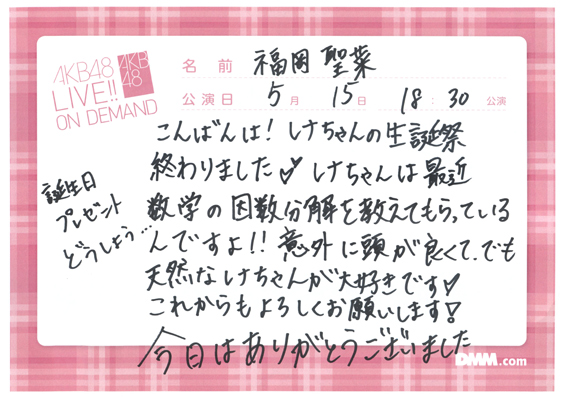 AKB48
LIVE!!
ON DEMAND
AKB
48
名 前 福岡 聖菜
公演日 5月 15日 18:30 公演
こんばんは! レナちゃんの生誕祭
終わりました♡ レナちゃんは最近
数学の因数分解を教えてもらっている
んですよ!! 意外に頭が良くて、でも
天然なレナちゃんが大好きです♡
これからもよろしくお願いします!
今日はありがとうございました
誕生日
プレゼント
どうしよう…
DMM.com